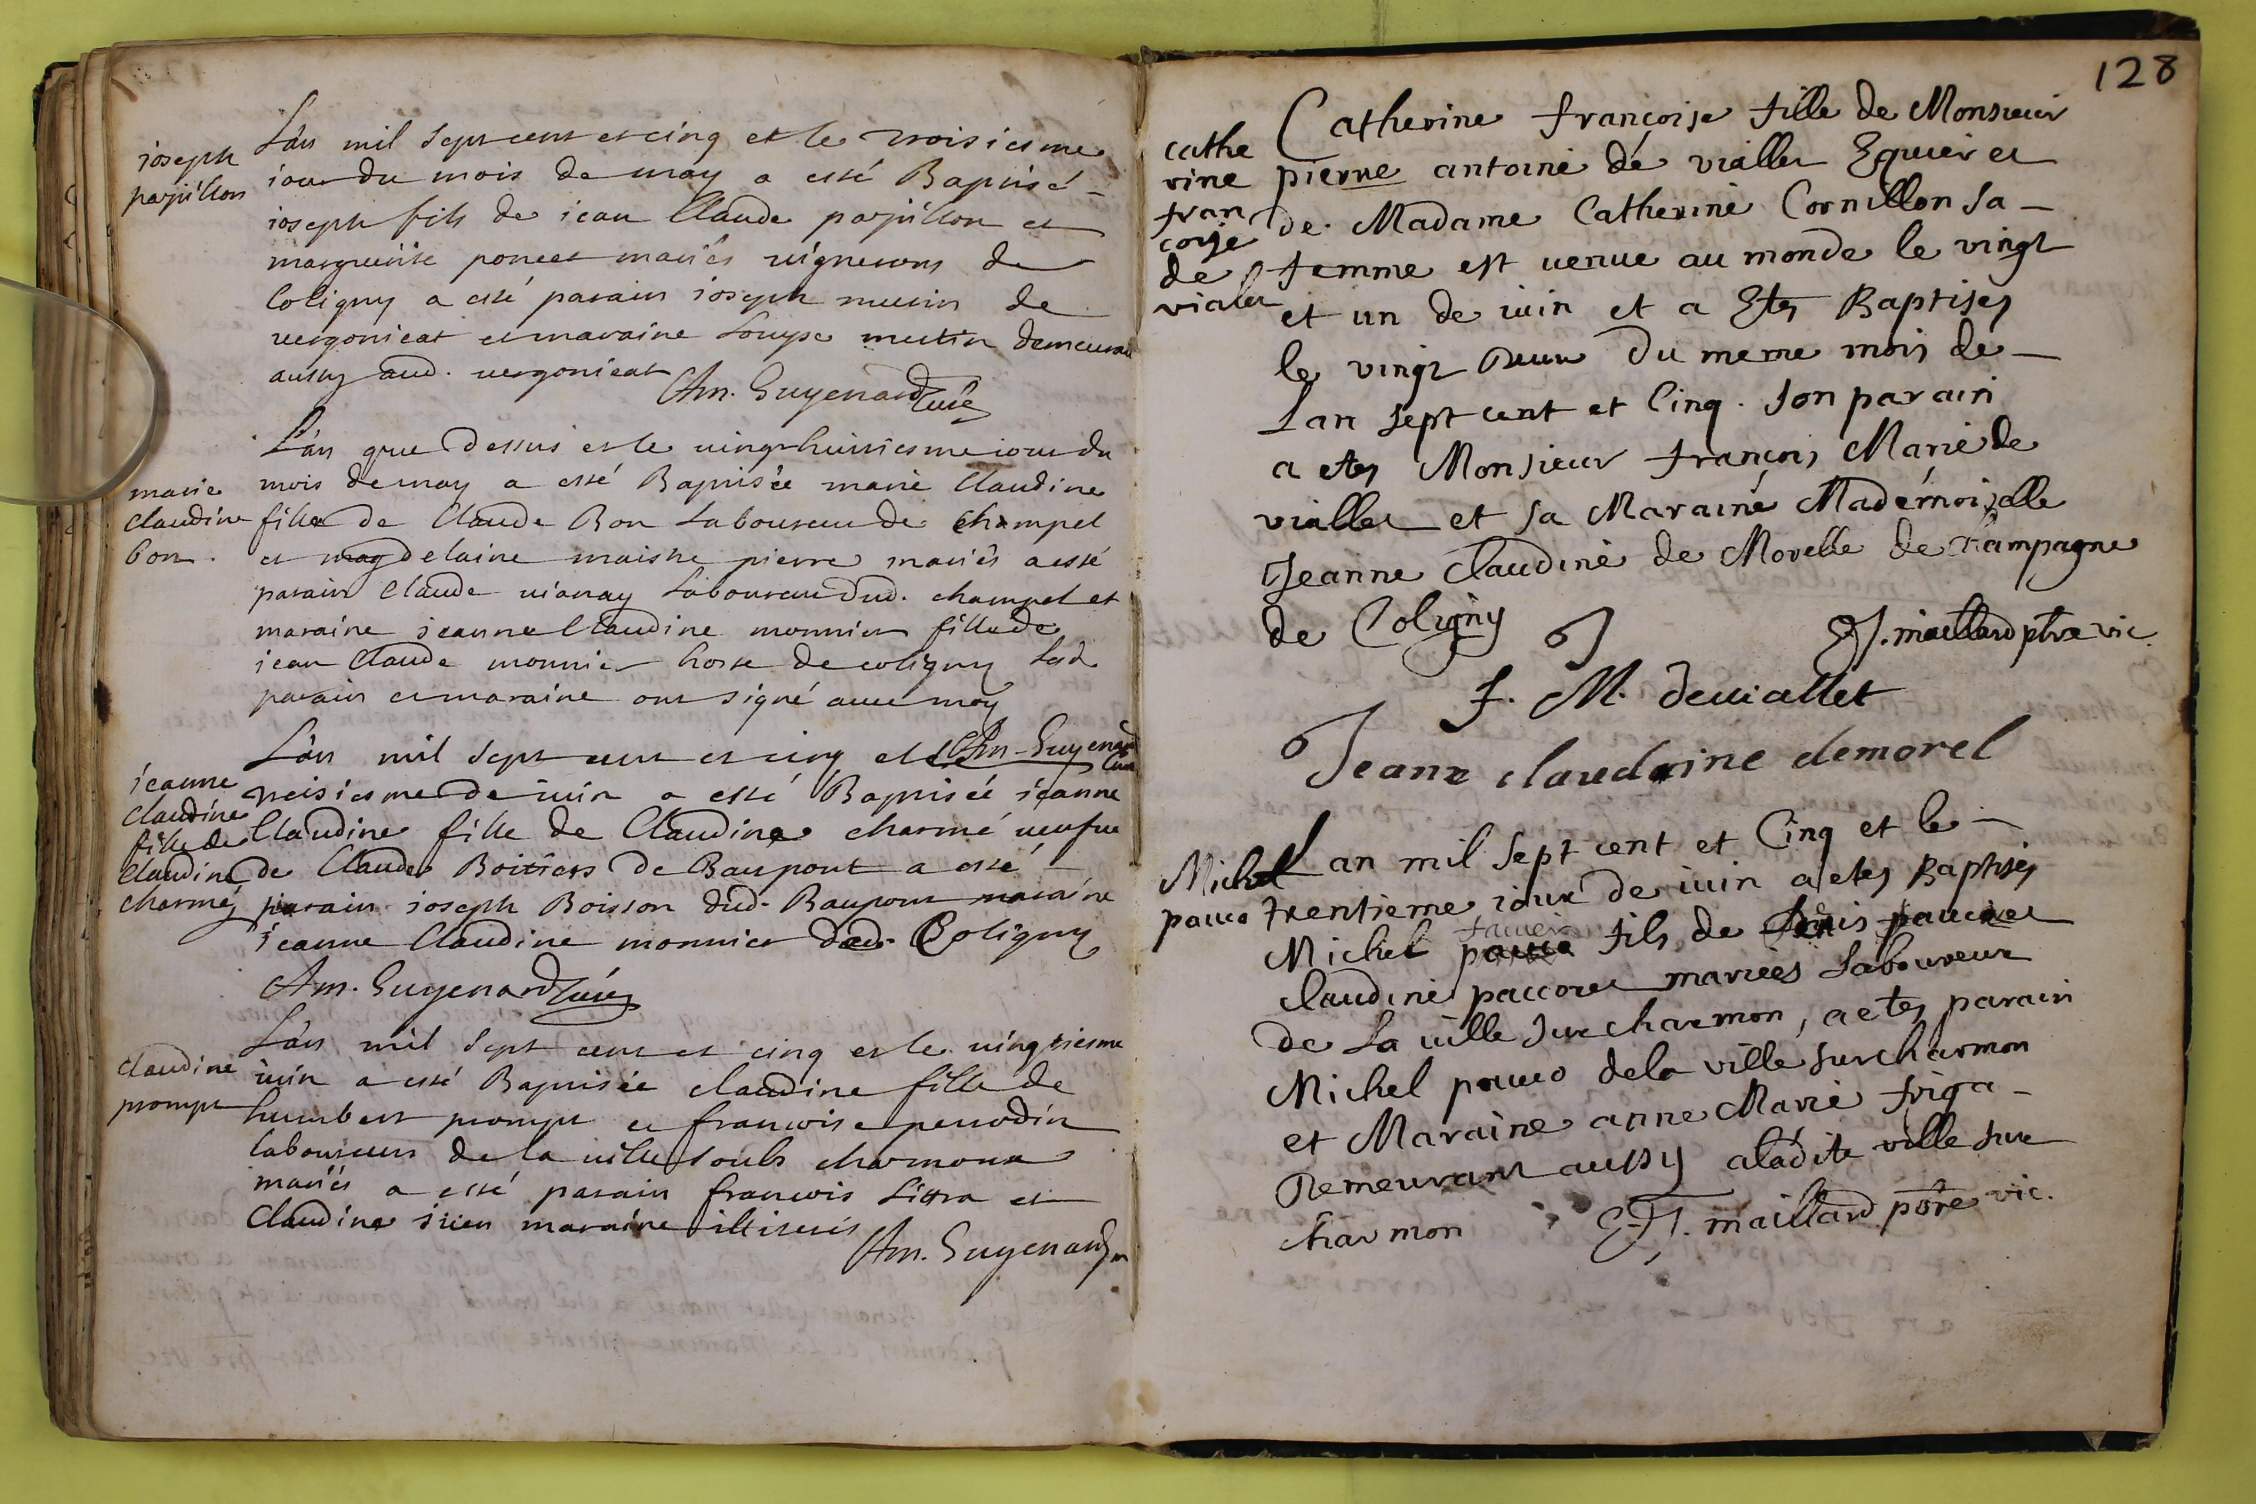 joseph
papillon
L'an mil sept cent et cinq et le troisiesme
jour du mois de may a esté Baptisé
joseph fils de jean Claude papillon et
marguerite poncet mariés vignerons de
Coligny a esté parain joseph mutin de
vergonieat et maraine Louyse mutin demeurant
aussy aud. vergonieat
Am. Guyenard Curé
marie
claudine
bon.
L'an que dessus et le vingt huitiesme jour du
mois de may a esté Baptisée marie Claudine
fille de Claude Bon Laboureur de Champel
et magdelaine maistre pierre mariés a esté
parain Claude vianay Laboureur dud. champel et
maraine jeanne Claudine monnier fille de
jean Claude monnier hoste de coligny Lesd
parain et maraine ont signé avec moy
Am. Guyenard
Curé
jeanne
claudine
fille de
Claudine
charmé
L'an mil sept cent et cinq et le
treisiesme de juin a esté Baptisée jeanne
Claudine fille de Claudine charmé veufve
de Claude Boitiers de Baupont a esté
parain joseph Boisson dud. Baupont maraine
jeanne Claudine monnier de Coligny
Am. Guyenard Curé
claudine
prompt
L'an mil sept cent et cinq et le vingtiesme
juin a esté Baptisée claudine fille de
humbert prompt et francoise perrodin
laboureurs de la ville soubs charmoux
mariés a esté parain francois Littra et
Claudine maraine illiterés
Am. Guyenard
128
cathe
rine
fran
coise
de
vialet
Catherine françoise fille de Monsieur
pierre antoine de viallet Equier et
de Madame Catherine Cornillon sa
femme est venue au monde le vingt
et un de iuin et a Etes Baptises
le vingt Deux du meme mois de
Lan sept cent et Cinq. son parain
a etes Monsieur françois Marie de
viallet et sa Maraine Mademoiselle
Jeanne Claudine de Morelle de Champagne
de Coligny
maillard ptre vic.
f. M. deviallet
Jeane claudaine demorel
Michel
pauco
Lan mil sept cent et Cinq et le
trentieme iour de iuin a etes Baptises
Michel fils de Denis
claudine paccoret mariees Laboureur
de La ville sur charmon, a etes parain
Michel pauco de la ville sur charmon
et Maraine anne Marie friga
Demeurant aussy a ladite ville sur
charmon
maillard ptre vic.